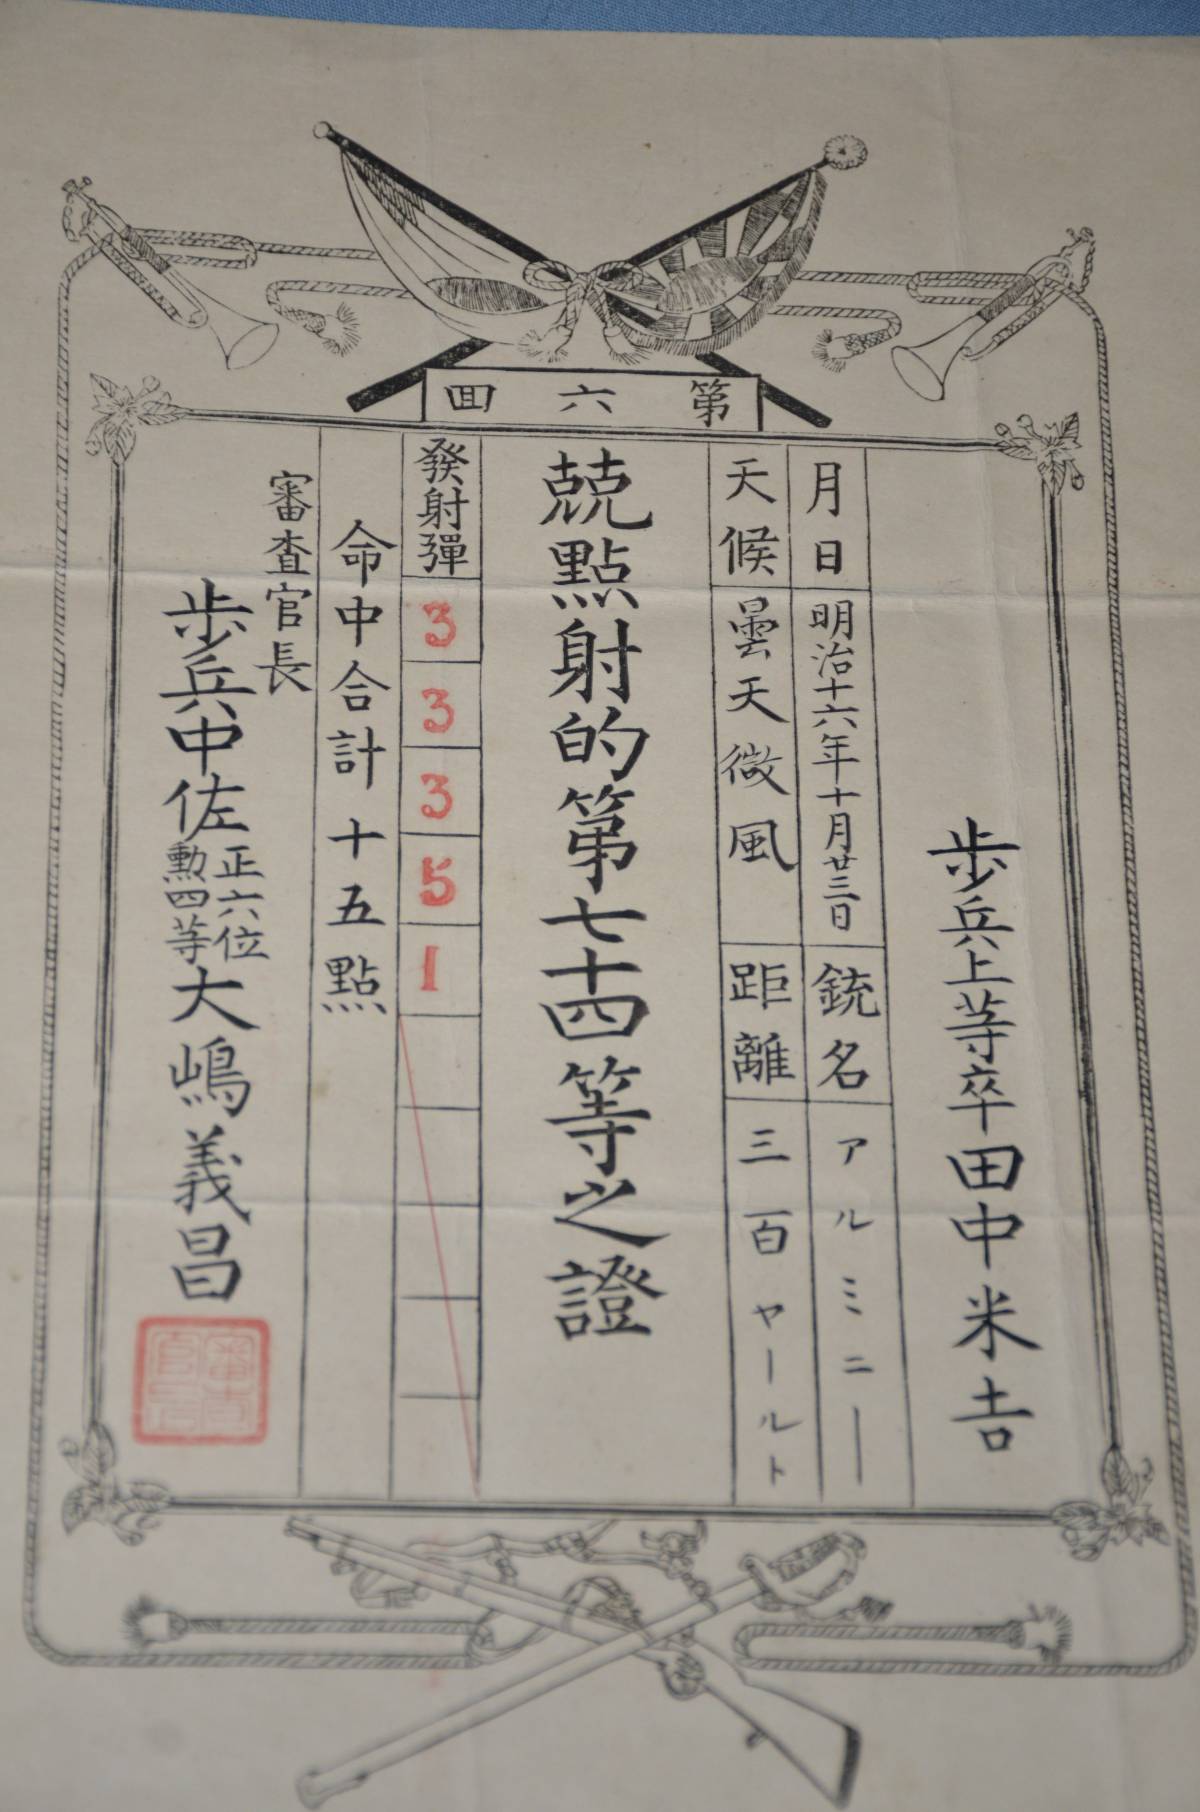 第六回
歩兵上等卒田中米吉
月日 明治十六年十月廿三日 銃名 アルミニー
天候 曇天微風 距離 三百ヤールト
兢點射的第七十四等之證
發射彈 3 3 3 5 1
命中合計十五點
審査官長
歩兵中佐 正六位 勲四等 大嶋義昌
審査官長